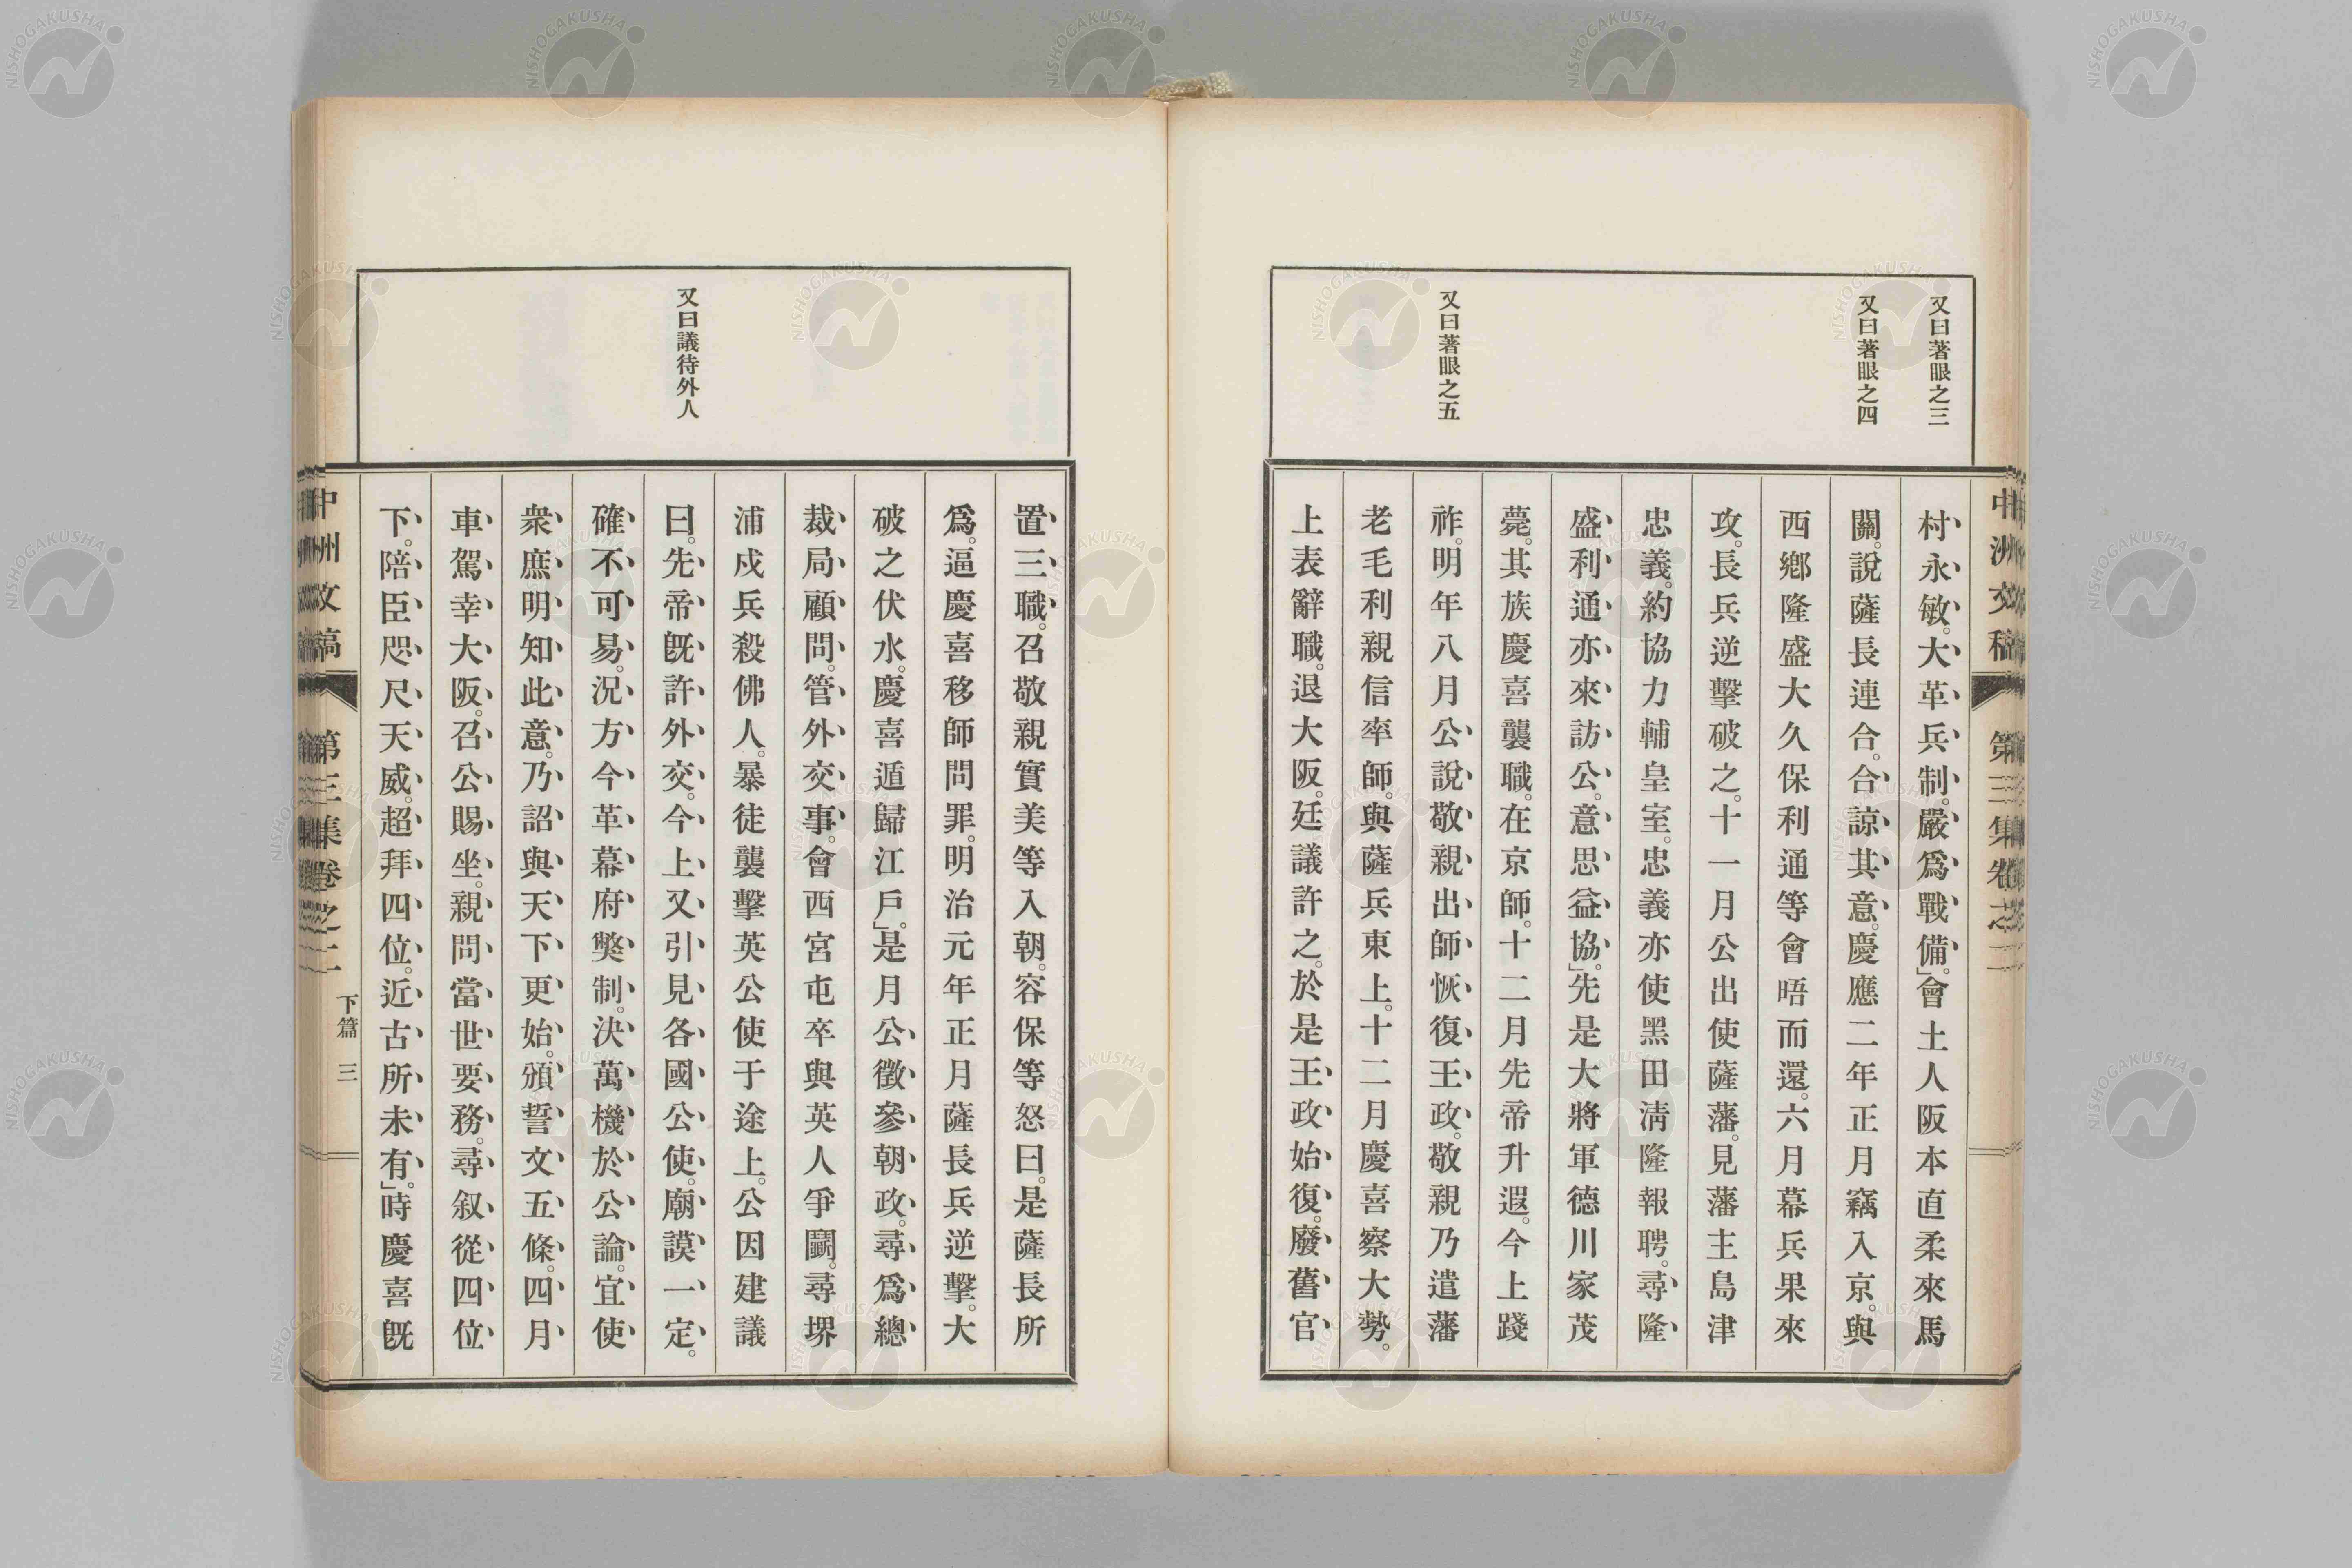 又曰著眼之三
又曰著眼之四
又曰著眼之五
村永敏。大革兵制。嚴爲戰備。」會土人阪本直柔來馬
關。說薩長連合。合諒其意。慶應二年正月竊入京。與
西鄉隆盛大久保利通等會晤而還。六月幕兵果來
攻。長兵逆擊破之。十一月公出使薩藩。見藩主島津
忠義。約協力輔皇室。忠義亦使黑田淸隆報聘。尋隆
盛利通亦來訪公。意思益協。」先是大將軍德川家茂
薨。其族慶喜襲職。在京師。十二月先帝升遐。今上踐
祚。明年八月公說敬親出師恢復王政。敬親乃遣藩
老毛利親信率師。與薩兵東上。十二月慶喜察大勢。
上表辭職。退大阪。廷議許之。於是王政始復。廢舊官
中洲文稿 第三集卷之二
又曰議待外人
置三職。召敬親實美等入朝。容保等怒曰。是薩長所
爲。逼慶喜移師問罪。明治元年正月薩長兵逆擊。大
破之伏水。慶喜遁歸江戶。」是月公徵參朝政。尋爲總
裁局顧問。管外交事。會西宮屯卒與英人爭鬪。尋堺
浦戍兵殺佛人。暴徒襲擊英公使于途上。公因建議
曰。先帝旣許外交。今上又引見各國公使。廟謨一定。
確不可易。況方今革幕府獘制。決萬機於公論。宜使
衆庶明知此意。乃詔與天下更始。頒誓文五條。四月
車駕幸大阪。召公賜坐。親問當世要務。尋叙從四位
下。陪臣咫尺天威。超拜四位。近古所未有。」時慶喜旣
中洲文稿 第三集卷之二 下篇 三
NISHOGAKUSHA